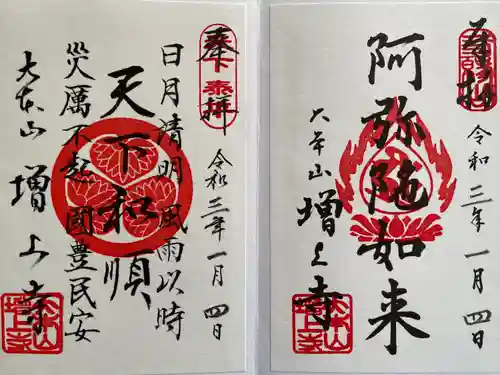 奉拝
令和三年一月四日
阿弥陀如来
大本山 増上寺
大本山
増上寺
奉拝
令和三年一月四日
日月清明風雨以時
天下和順
災厲不起國豊民安
大本山 増上寺
大本山
増上寺